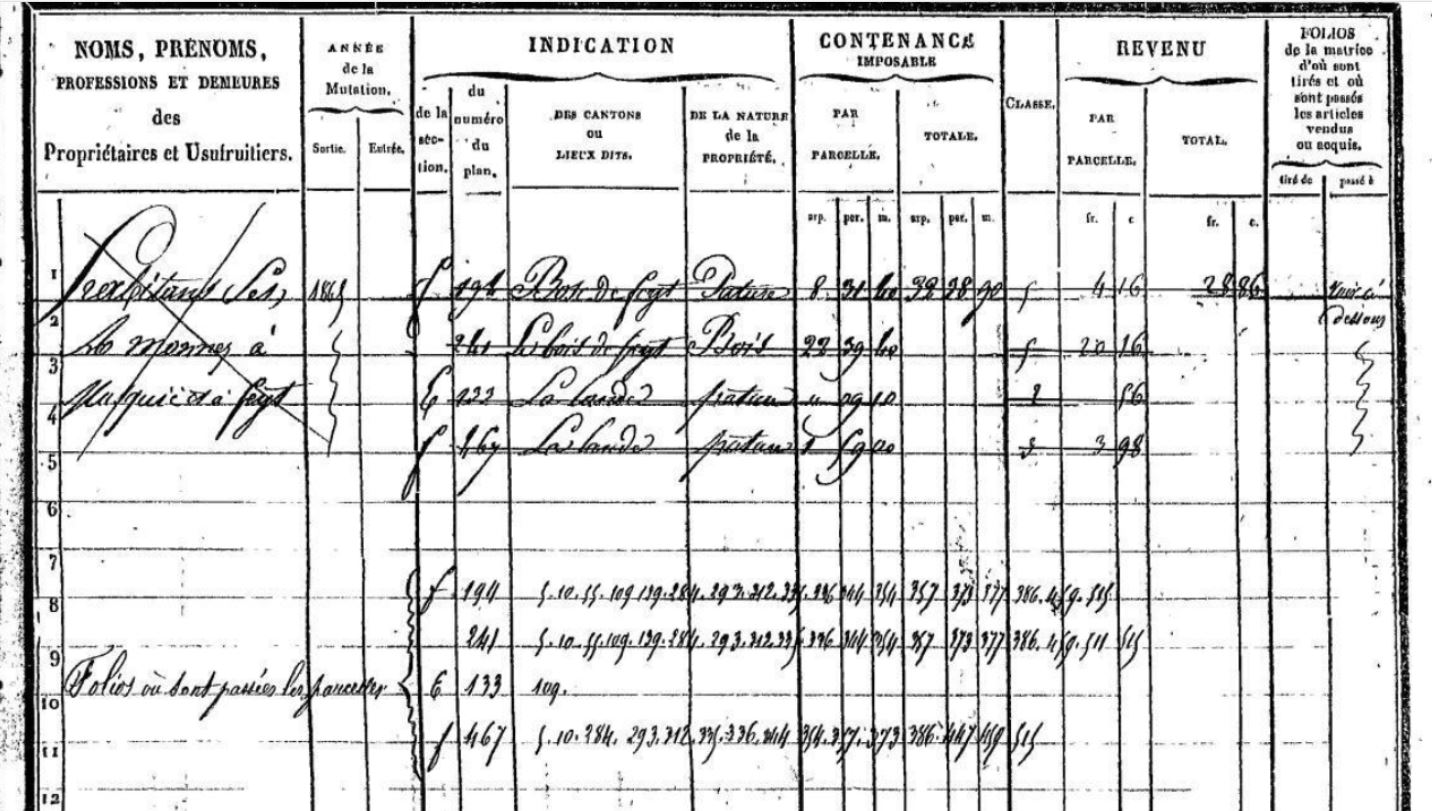 NOMS, PRÉNOMS,
PROFESSIONS ET DEMEURES
des
Propriétaires et Usufruitiers.
ANNÉE
de la
Mutation.
Sortie. Entrée.
INDICATION
de la
sec-
tion.
du
numéro
du
plan.
DES CANTONS
ou
LIEUX DITS.
DE LA NATURE
de la
PROPRIÉTÉ.
CONTENANCE
IMPOSABLE
PAR
PARCELLE.
TOTALE.
arp. per. m. arp. per. m.
CLASSE.
REVENU
PAR
PARCELLE.
TOTAL.
fr. c. fr. c.
FOLIOS
de la matrice
d'où sont
tirés et où
sont passés
les articles
vendus
ou acquis.
tiré de passé à
1 habitants Les 1865 f 194 Bos de feyt Pature 8 31 40 32 28 90 5 4 16 28 86 Voir ci
dessous
2
3 à 241 Le bois de feyt Bois 22 39 40 5 20 16
4 à feyt E La lande pature 09 10 2 56
5 f 467 La lande pature 1 59 00 3 3 98
6
7
8 f 194 5. 10. 55. 109 139. 284. 293. 312. 335. 336 344 354 357 373 377 386. 459. 515
9 241 5. 10. 55. 109. 139. 284. 293. 312. 335 336 344 354 357 373 377 386. 459. 511 515
10 Folios où sont passées les parcelles E 133 109.
11 f 467 5. 10. 284. 293. 312. 335. 336. 344 354. 357. 373 386. 447 459 515
12